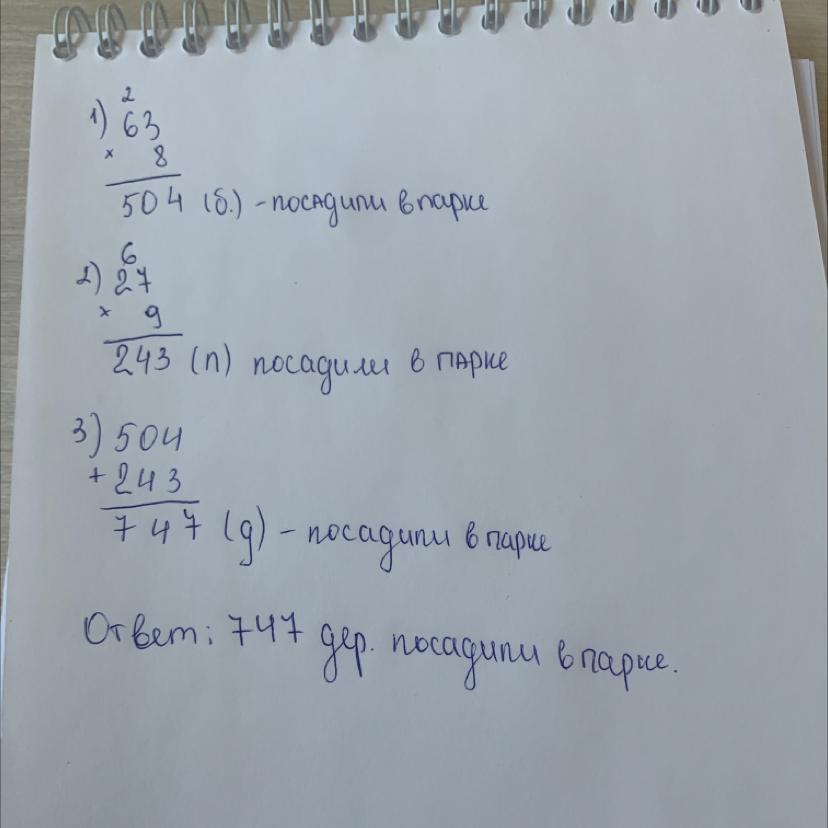 2
1) 63
× 8
504 (б.) - посадили в парке
6
2) 27
× 9
243 (п) посадили в парке
3) 504
+ 243
747 (д) - посадили в парке
Ответ: 747 дер. посадили в парке.